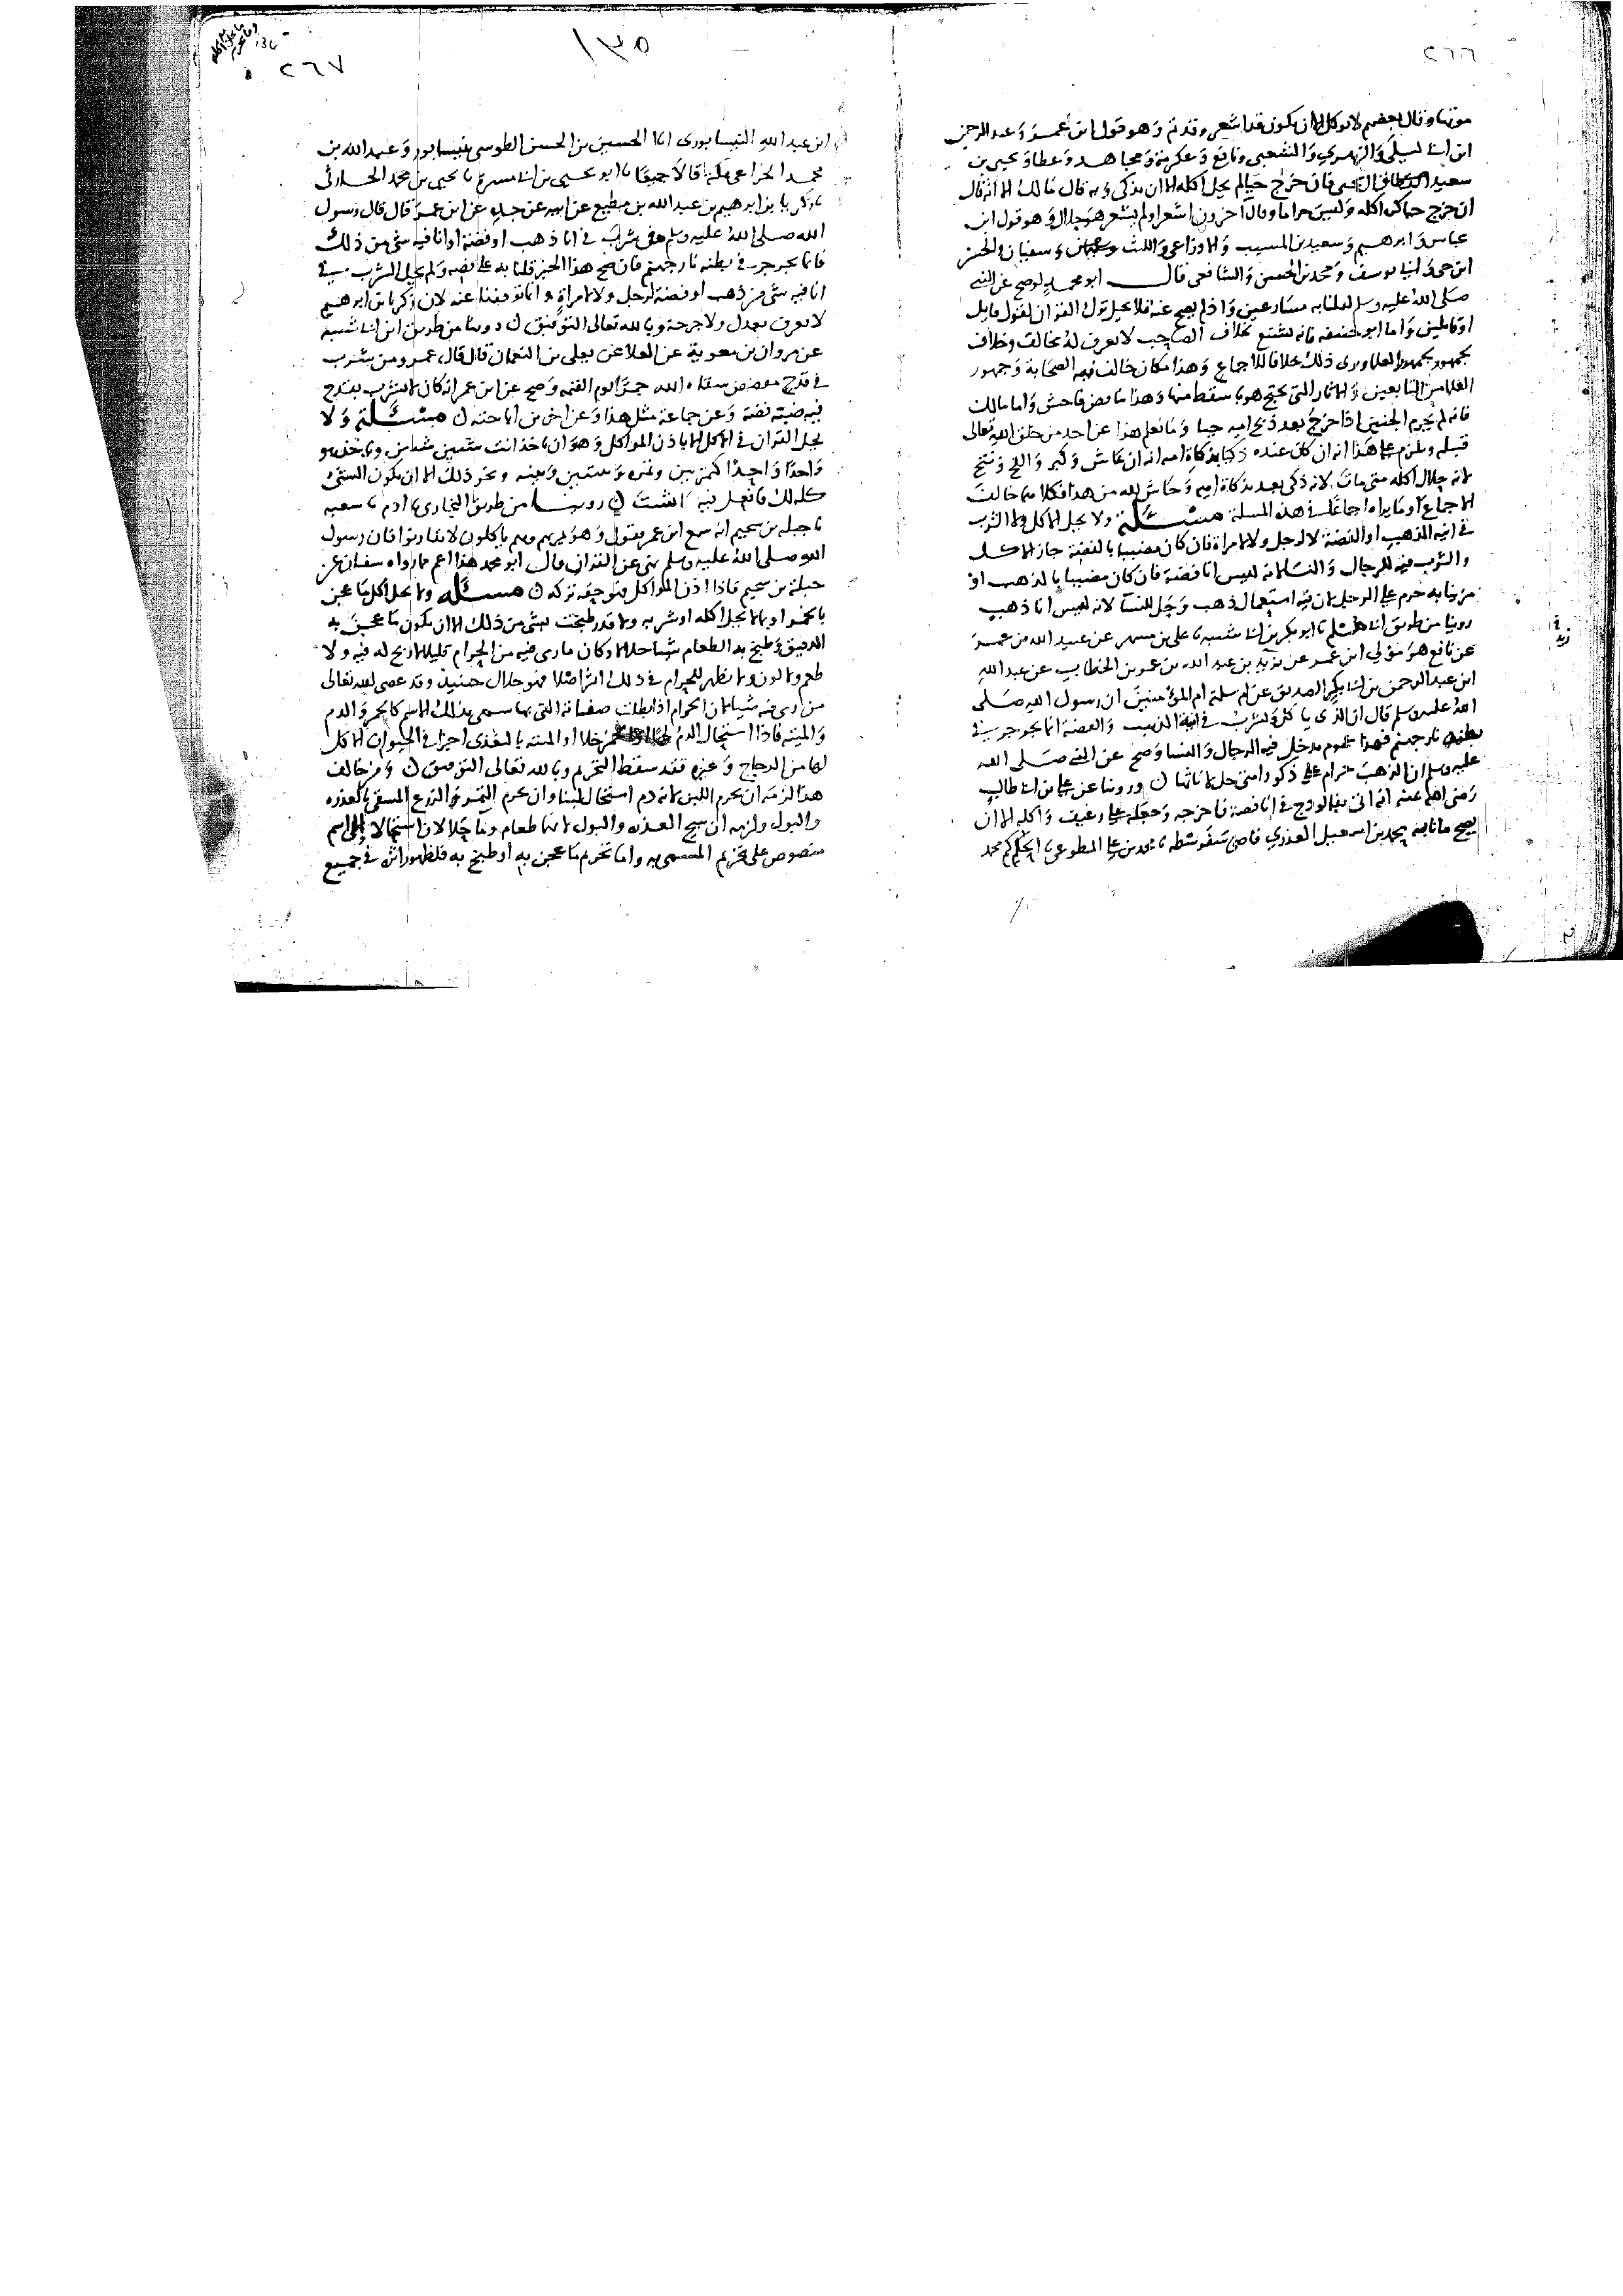 ٢٦٦
موتها وقال بعضهم لا يوكل الا ان يكون قد اشعر وقد تم وهو قول ابن عمر وعبد الرحمن
ابن ابي ليلى والزهري والشعبي ونافع وعكرمة ومجاهد وعطا ويحيى بن
سعيد قال فان خرج حيا لم يحل اكله الا ان يذكى وبه قال مالك الا انه قال
ان خرج حيا كره اكله وليس حراما وقال اخرون اشعر او لم يشعر هو حلال وهو قول ابن
عباس وابرهيم وسعيد بن المسيب والاوزاعي والليث وسفيان والحسن
ابن حي وابي يوسف ومحمد بن الحسن والشافعي قال ابو محمد لو صح عن النبي
صلى الله عليه وسلم لقلنا به مسارعين واذ لم يصح عنه فلا يحل ترك القران لقول قايل
او قايلين واما ابو حنيفه فانه يشنع بخلاف الصاحب لا يعرف له مخالف وخلاف
جمهور العلما ويرى ذلك خلافا للاجماع وهذا مكان خالف فيه الصحابة وجمهور
العلما من التابعين والاثار التي يحتج هو باسقط منها وهذا تناقض فاحش واما مالك
فانه لم يحرم الجنين اذا خرج بعد ذبح امه حيا وما نعلم هذا عن احد من خلق الله تعالى
قبله ويلزم على هذا انه ان كان عنده ذكيا بذكاة امه انه ان عاش وكبر والقح ونتج
انه حلال اكله متى مات لانه ذكي بعد بذكاة امه وحاش لله من هذا فكلاهما خالف
الاجماع او ما يراه اجماعا في هذه المسلة مسئلة ولا يحل الاكل ولا الشرب
في انيه الذهب او الفضة لا لرجل ولا لامراة فان كان مضببا بالفضة جاز الاكل
والشرب فيه للرجال والنسا لانه ليس انا فضة فان كان مضببا بالذهب او
مزينا به حرم على الرجل لان فيه استعمال ذهب وحل للنسا لانه ليس انا ذهب
روينا من طريق مسلم نا ابو بكر بن ابي شيبه نا علي بن مسهر عن عبيد الله بن عمر
عن نافع هو مولى ابن عمر عن زيد بن عبد الله بن عمر بن الخطاب عن عبد الله
ابن عبد الرحمن بن ابي بكر الصديق عن ام سلمة ام المؤمنين ان رسول الله صلى
الله عليه وسلم قال ان الذي ياكل ويشرب في انية الذهب والفضة انما يجرجر في
بطنه نار جهنم فهذا عموم يدخل فيه الرجال والنسا وصح عن النبي صلى الله
عليه وسلم ان الذهب حرام على ذكور امتي حل لاناثها وروينا عن علي بن ابي طالب
رضي الله عنه انه اتي بفالوذج في انا فضة فاخرجه وجعله على رغيف واكله الا ان
يصح ما نا به محمد بن اسمعيل العذري قاضي سرقسطه نا محمد بن علي المطوعي نا الحاكم محمد
١٣٥
٢٦٧
ابن عبد الله النيسابوري انا الحسين بن الحسن الطوسي بنيسابور وعبد الله بن
محمد الخزاعي بمكة قالا جميعا نا ابو يحيى بن ابي مسرة نا يحيى بن محمد الحارثي
نا زكريا بن ابرهيم بن عبد الله بن مطيع عن ابيه عن جده عن ابن عمر قال قال رسول
الله صلى الله عليه وسلم من شرب في انا ذهب او فضة او انا فيه شي من ذلك
فانما يجرجر في بطنه نار جهنم فان صح هذا الخبر قلنا به على نصه ولم يحل الشرب في
انا فيه شي من ذهب او فضة لرجل ولا امراة وانما توقفنا عنه لان زكريا بن ابرهيم
لا يعرف بعدل ولا جرحة وبالله تعالى التوفيق روينا من طريق ابن ابي شيبة
عن مروان بن معوية عن العلا عن يعلى بن النعمان قال قال عمر ومن شرب
في قدح مفضض سقاه الله جمرا يوم القيمه وصح عن ابن عمر انه كان لا يشرب بقدح
فيه ضبة فضة وعن جماعة مثل هذا وعن اخرين اباحته مسئلة ولا
يحل القران في الاكل الا باذن المواكل وهو ان تاخذ انت شيئين شيئين وياخذ هو
واحدا واحدا كتمرتين وتمره وتينتين وتينه ونحو ذلك الا ان يكون الشي
كله لك فافعل فيه ما شئت روينا من طريق البخاري نا ادم نا شعبه
نا جبله بن سحيم انه سمع ابن عمر يقول وهو يمر بهم وهم ياكلون لا تقارنوا فان رسول
الله صلى الله عليه وسلم نهى عن القران قال ابو محمد هذا اعم مما رواه سفيان عن
جبلة بن سحيم فاذا اذن المواكل فهو حقه تركه مسئله ولا يحل اكل ما عجن
بالخمر او بما لا يحل اكله او شربه ولا قدر طبخت بشي من ذلك الا ان يكون ما عجن به
الدقيق وطبخ به الطعام شيا حلالا وكان ما رمي فيه من الحرام قليلا لا ريح له فيه ولا
طعم ولا لون ولا يظهر للحرام في ذلك اثر اصلا فهو حلال حينيذ وقد عصى الله تعالى
من رمى فيه شيا لان الحرام اذا بطلت صفاته التي بها سمي بذلك الاسم كالخمر والدم
والميته فاذا استحال الدم لحما او الخمر خلا او الميته بالتغذي اجزا في الحيوان الاكل
لها من الدجاج وغيره فقد سقط التحريم وبالله تعالى التوفيق ومن خالف
هذا لزمه ان يحرم اللبن لانه دم استحال لبنا وان يحرم التمر والزرع المسقى بالعذره
والبول ولزمه ان يبيح العذره والبول لانهما طعام وما حلالان استحالا الى اسم
منصوص على تحريم المسمى به واما تحريم ما عجن به او طبخ به فلظهور اثره في جميع